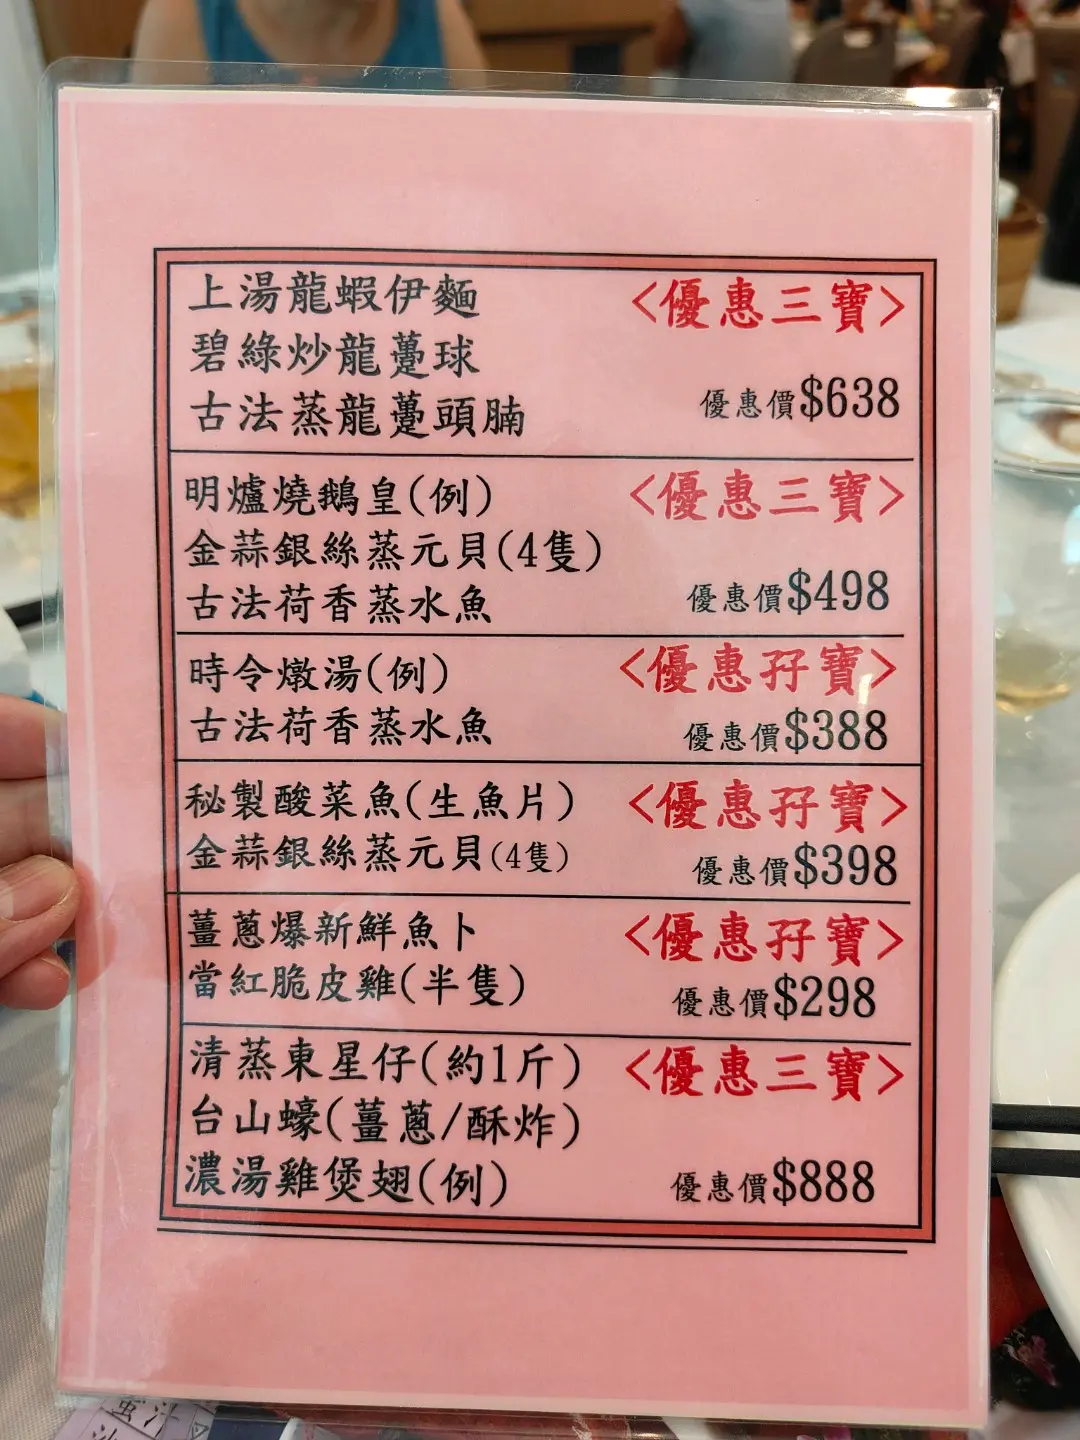 上湯龍蝦伊麵
<優惠三寶>
碧綠炒龍躉球
古法蒸龍躉頭腩
優惠價$638
明爐燒鵝皇(例)
<優惠三寶>
金蒜銀絲蒸元貝(4隻)
古法荷香蒸水魚
優惠價$498
時令燉湯(例)
<優惠孖寶>
古法荷香蒸水魚
優惠價$388
秘製酸菜魚(生魚片)
<優惠孖寶>
金蒜銀絲蒸元貝(4隻)
優惠價$398
薑蔥爆新鮮魚卜
<優惠孖寶>
當紅脆皮雞(半隻)
優惠價$298
清蒸東星仔(約1斤)
<優惠三寶>
台山蠔(薑蔥/酥炸)
濃湯雞煲翅(例)
優惠價$888
蜜汁